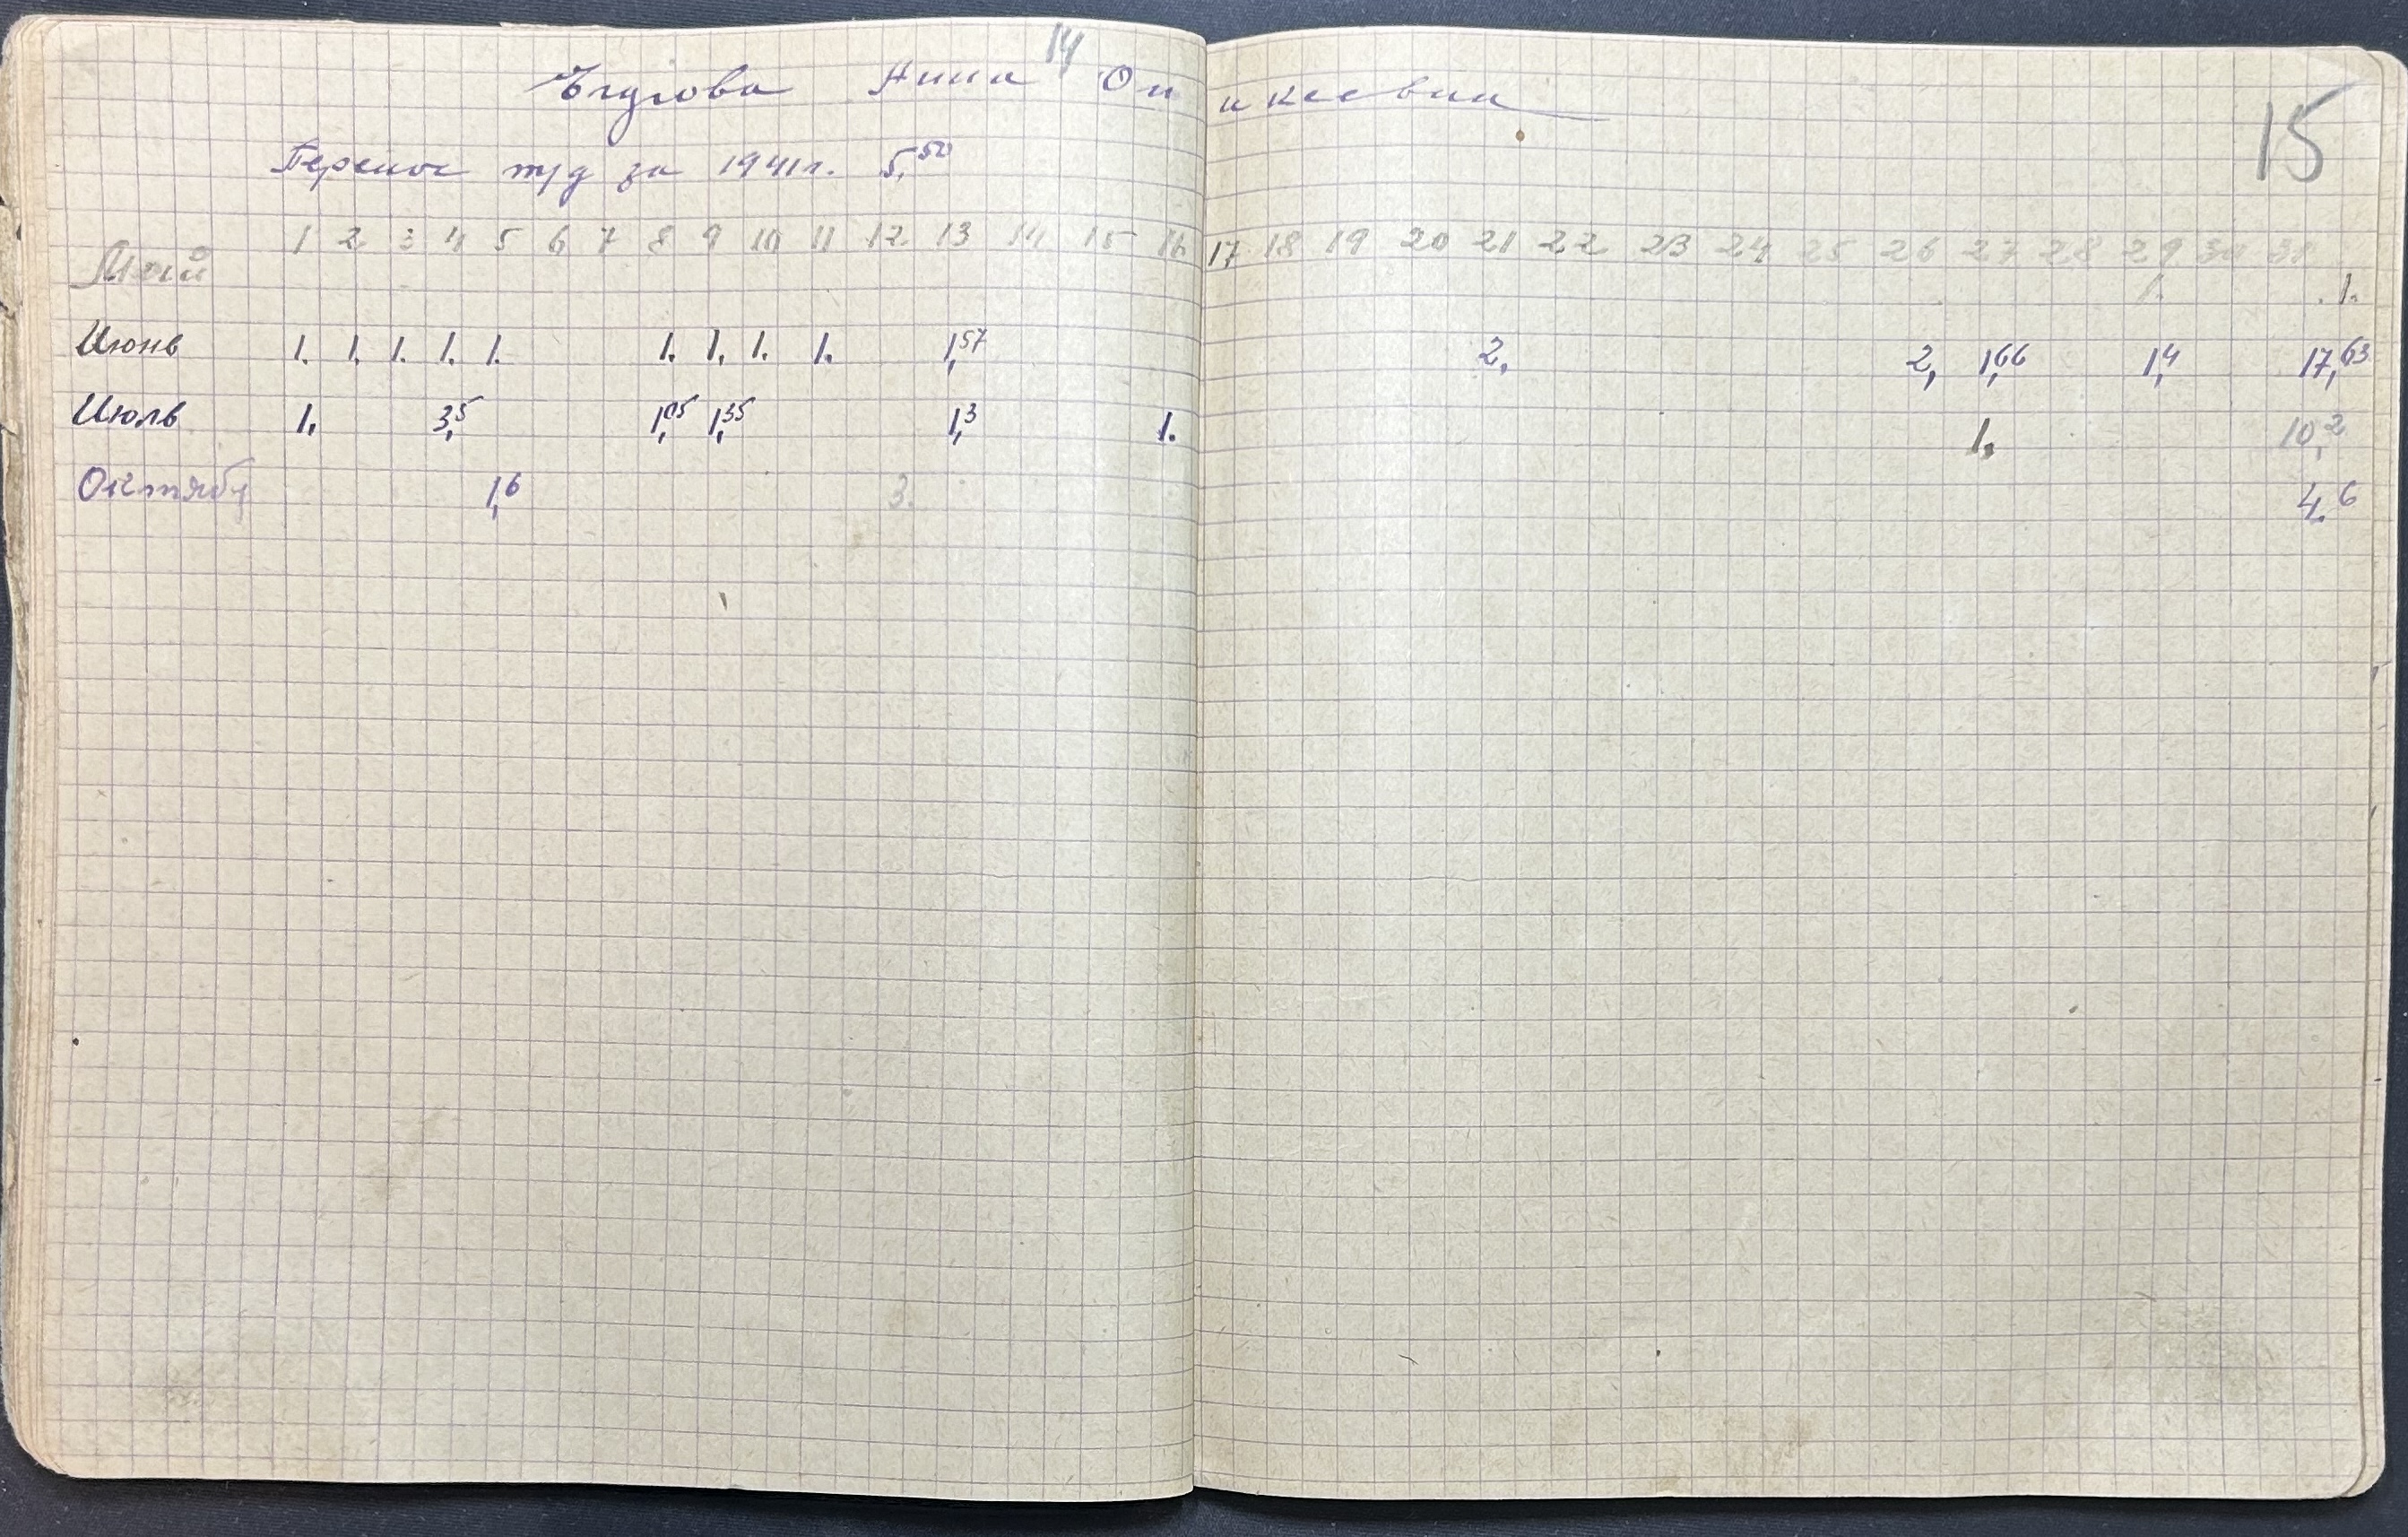 14
Нина Оникеевна
15
Перенос т/д за 1941 г. 5,50
1 2 3 4 5 6 7 8 9 10 11 12 13 14 15 16 17 18 19 20 21 22 23 24 25 26 27 28 29 30 31
Май 1. 1.
Июнь 1. 1. 1. 1. 1. 1. 1. 1. 1. 1,57 2, 2, 1,66 1,4 17,63
Июль 1. 3,5 1,05 1,35 1,3 1. 1. 10,2
Октябр 1,6 3. 4,6